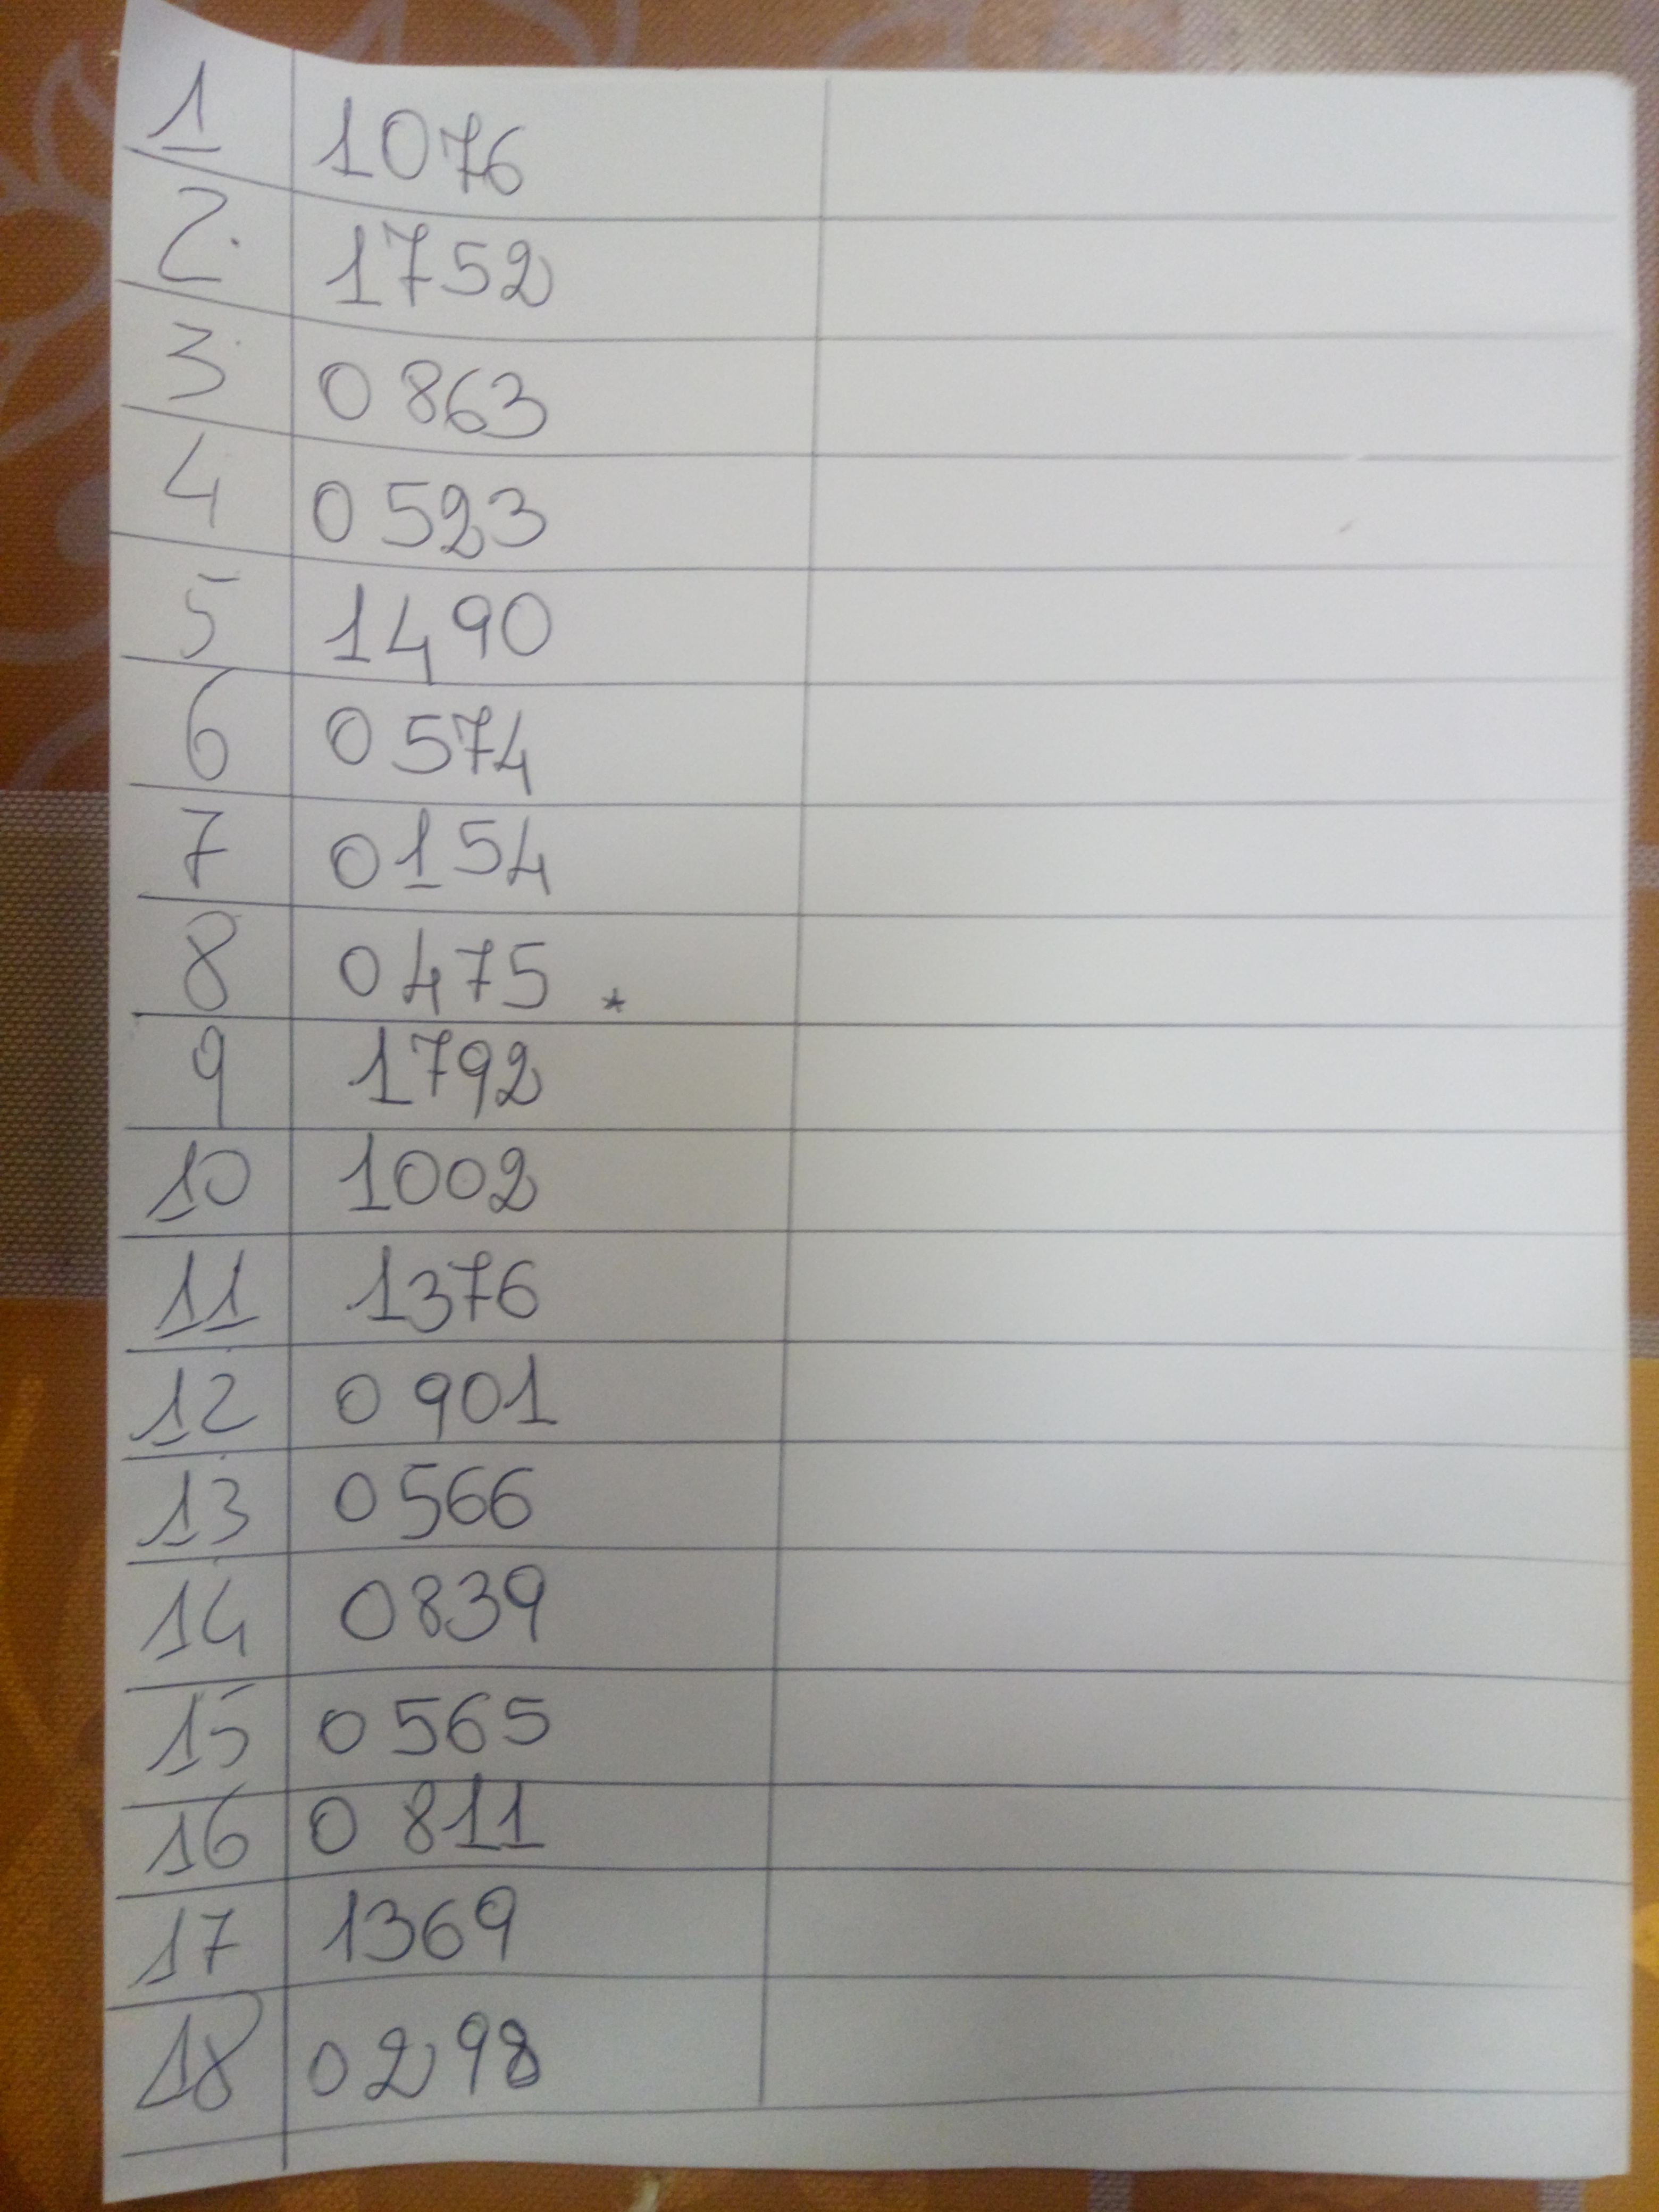 1 1076
2 1752
3 0863
4 0523
5 1490
6 0574
7 0154
8 0475 *
9 1792
10 1002
11 1376
12 0901
13 0566
14 0839
15 0565
16 0811
17 1369
18 0298